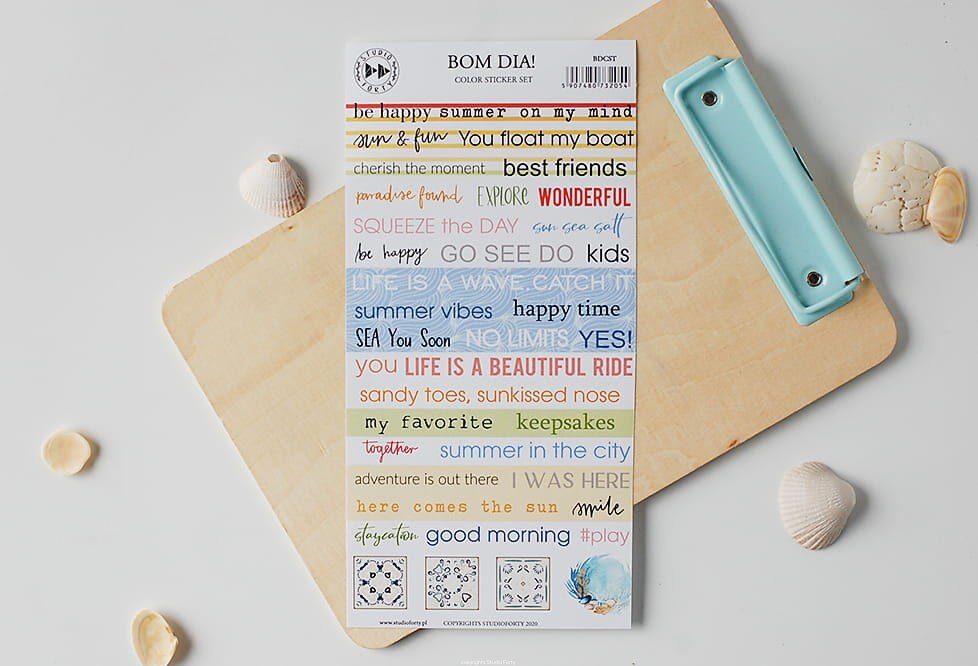 STUDIO FORTY
BOM DIA!
COLOR STICKER SET
BDCST
5 907480 732054
be happy summer on my mind
sun & fun You float my boat
cherish the moment best friends
paradise found EXPLORE WONDERFUL
SQUEEZE the DAY sun sea salt
be happy GO SEE DO kids
LIFE IS A WAVE. CATCH IT
summer vibes happy time
SEA You Soon NO LIMITS YES!
you LIFE IS A BEAUTIFUL RIDE
sandy toes, sunkissed nose
my favorite keepsakes
together summer in the city
adventure is out there I WAS HERE
here comes the sun smile
staycation good morning #play
www.studioforty.pl COPYRIGHTS STUDIOFORTY 2020
copyrights Studio Forty